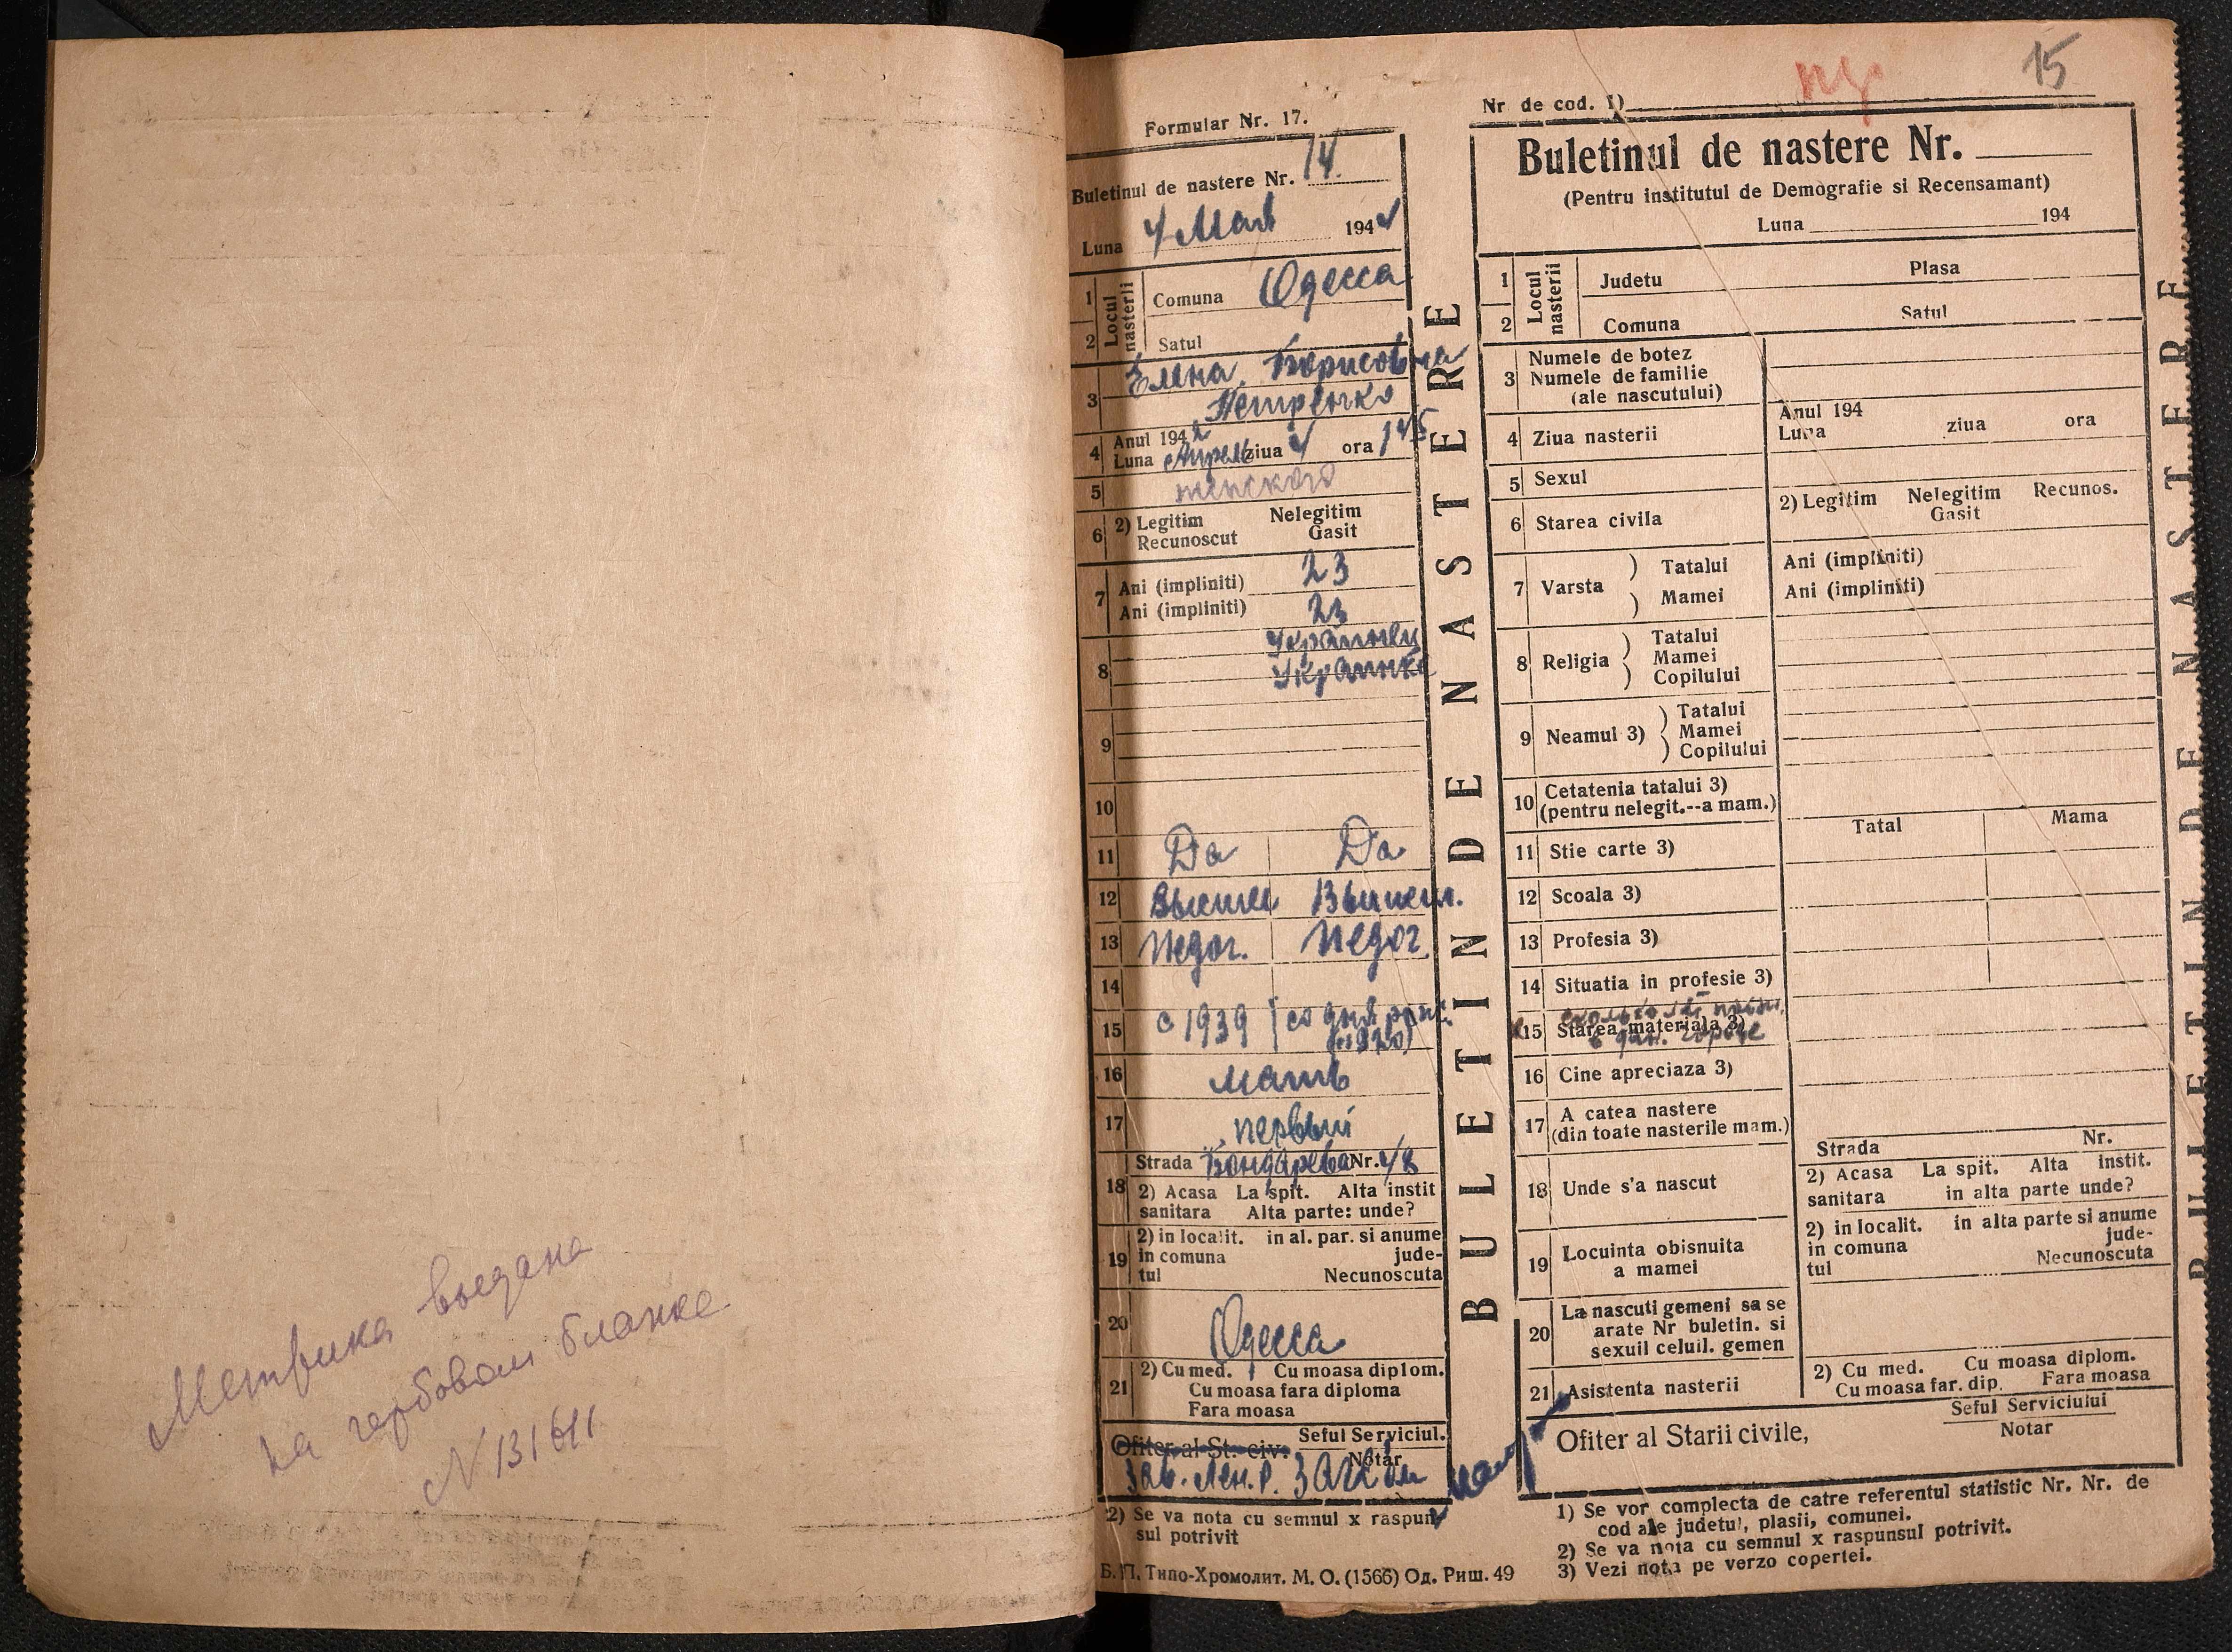 Метрика выдана
на гербовом бланке
N 131611
Formular Nr. 17.
Buletinul de nastere Nr. 14.
Luna 4 Мая 1944
1 2 Locul nasterii
Comuna Одесса
Satul
3 Елена Борисовна
Петренко
4 Anul 1942
Luna Апрель ziua 4 ora 1 45
5 женского
6 2) Legitim Nelegitim
Recunoscut Gasit
7 Ani (impliniti) 23
Ani (impliniti) 23
8 Украинец
Украинка
9
10
11 Да Да
12 Высшее Высшеш.
13 Педог. Педог.
14
15 с 1939 со дня рож.
(1920)
16 мать
17 первый
Strada Бондарева Nr. 48
18 2) Acasa La spit. Alta instit
sanitara Alta parte: unde?
19 2) in localit. in al. par. si anume
in comuna jude-
tul Necunoscuta
20 Одесса
21 2) Cu med. Cu moasa diplom.
Cu moasa fara diploma
Fara moasa
Ofiter al St. civ. Seful Serviciul.
Notar
Зав. Лен. р. ЗАГСом
2) Se va nota cu semnul x raspun-
sul potrivit
Б. П. Типо-Хромолит. М. О. (1566) Од. Риш. 49
BULETIN DE NASTERE
15
Nr de cod. 1)
Buletinul de nastere Nr.
(Pentru institutul de Demografie si Recensamant)
Luna 194
1 2 Locul nasterii
Judetu Plasa
Comuna Satul
3 Numele de botez
Numele de familie
(ale nascutului)
4 Ziua nasterii
Anul 194
Luna ziua ora
5 Sexul
6 Starea civila
2) Legitim Nelegitim Recunos.
Gasit
7 Varsta Tatalui Ani (impliniti)
Mamei Ani (impliniti)
8 Religia Tatalui
Mamei
Copilului
9 Neamul 3) Tatalui
Mamei
Copilului
10 Cetatenia tatalui 3)
(pentru nelegit.--a mam.)
Tatal Mama
11 Stie carte 3)
12 Scoala 3)
13 Profesia 3)
14 Situatia in profesie 3)
сколько лет
15 Starea materiala 3)
в дан. городе
16 Cine apreciaza 3)
17 A catea nastere
(din toate nasterile mam.)
18 Unde s'a nascut
Strada Nr.
2) Acasa La spit. Alta instit.
sanitara in alta parte unde?
19 Locuinta obisnuita
a mamei
2) in localit. in alta parte si anume
in comuna jude-
tul Necunoscuta
20 La nascuti gemeni sa se
arate Nr buletin. si
sexuil celuil. gemen
21 Asistenta nasterii
2) Cu med. Cu moasa diplom.
Cu moasa far. dip. Fara moasa
Ofiter al Starii civile,
Seful Serviciului
Notar
1) Se vor complecta de catre referentul statistic Nr. Nr. de
cod ale judetul, plasii, comunei.
2) Se va nota cu semnul x raspunsul potrivit.
3) Vezi nota pe verzo copertei.
BULETIN DE NASTERE